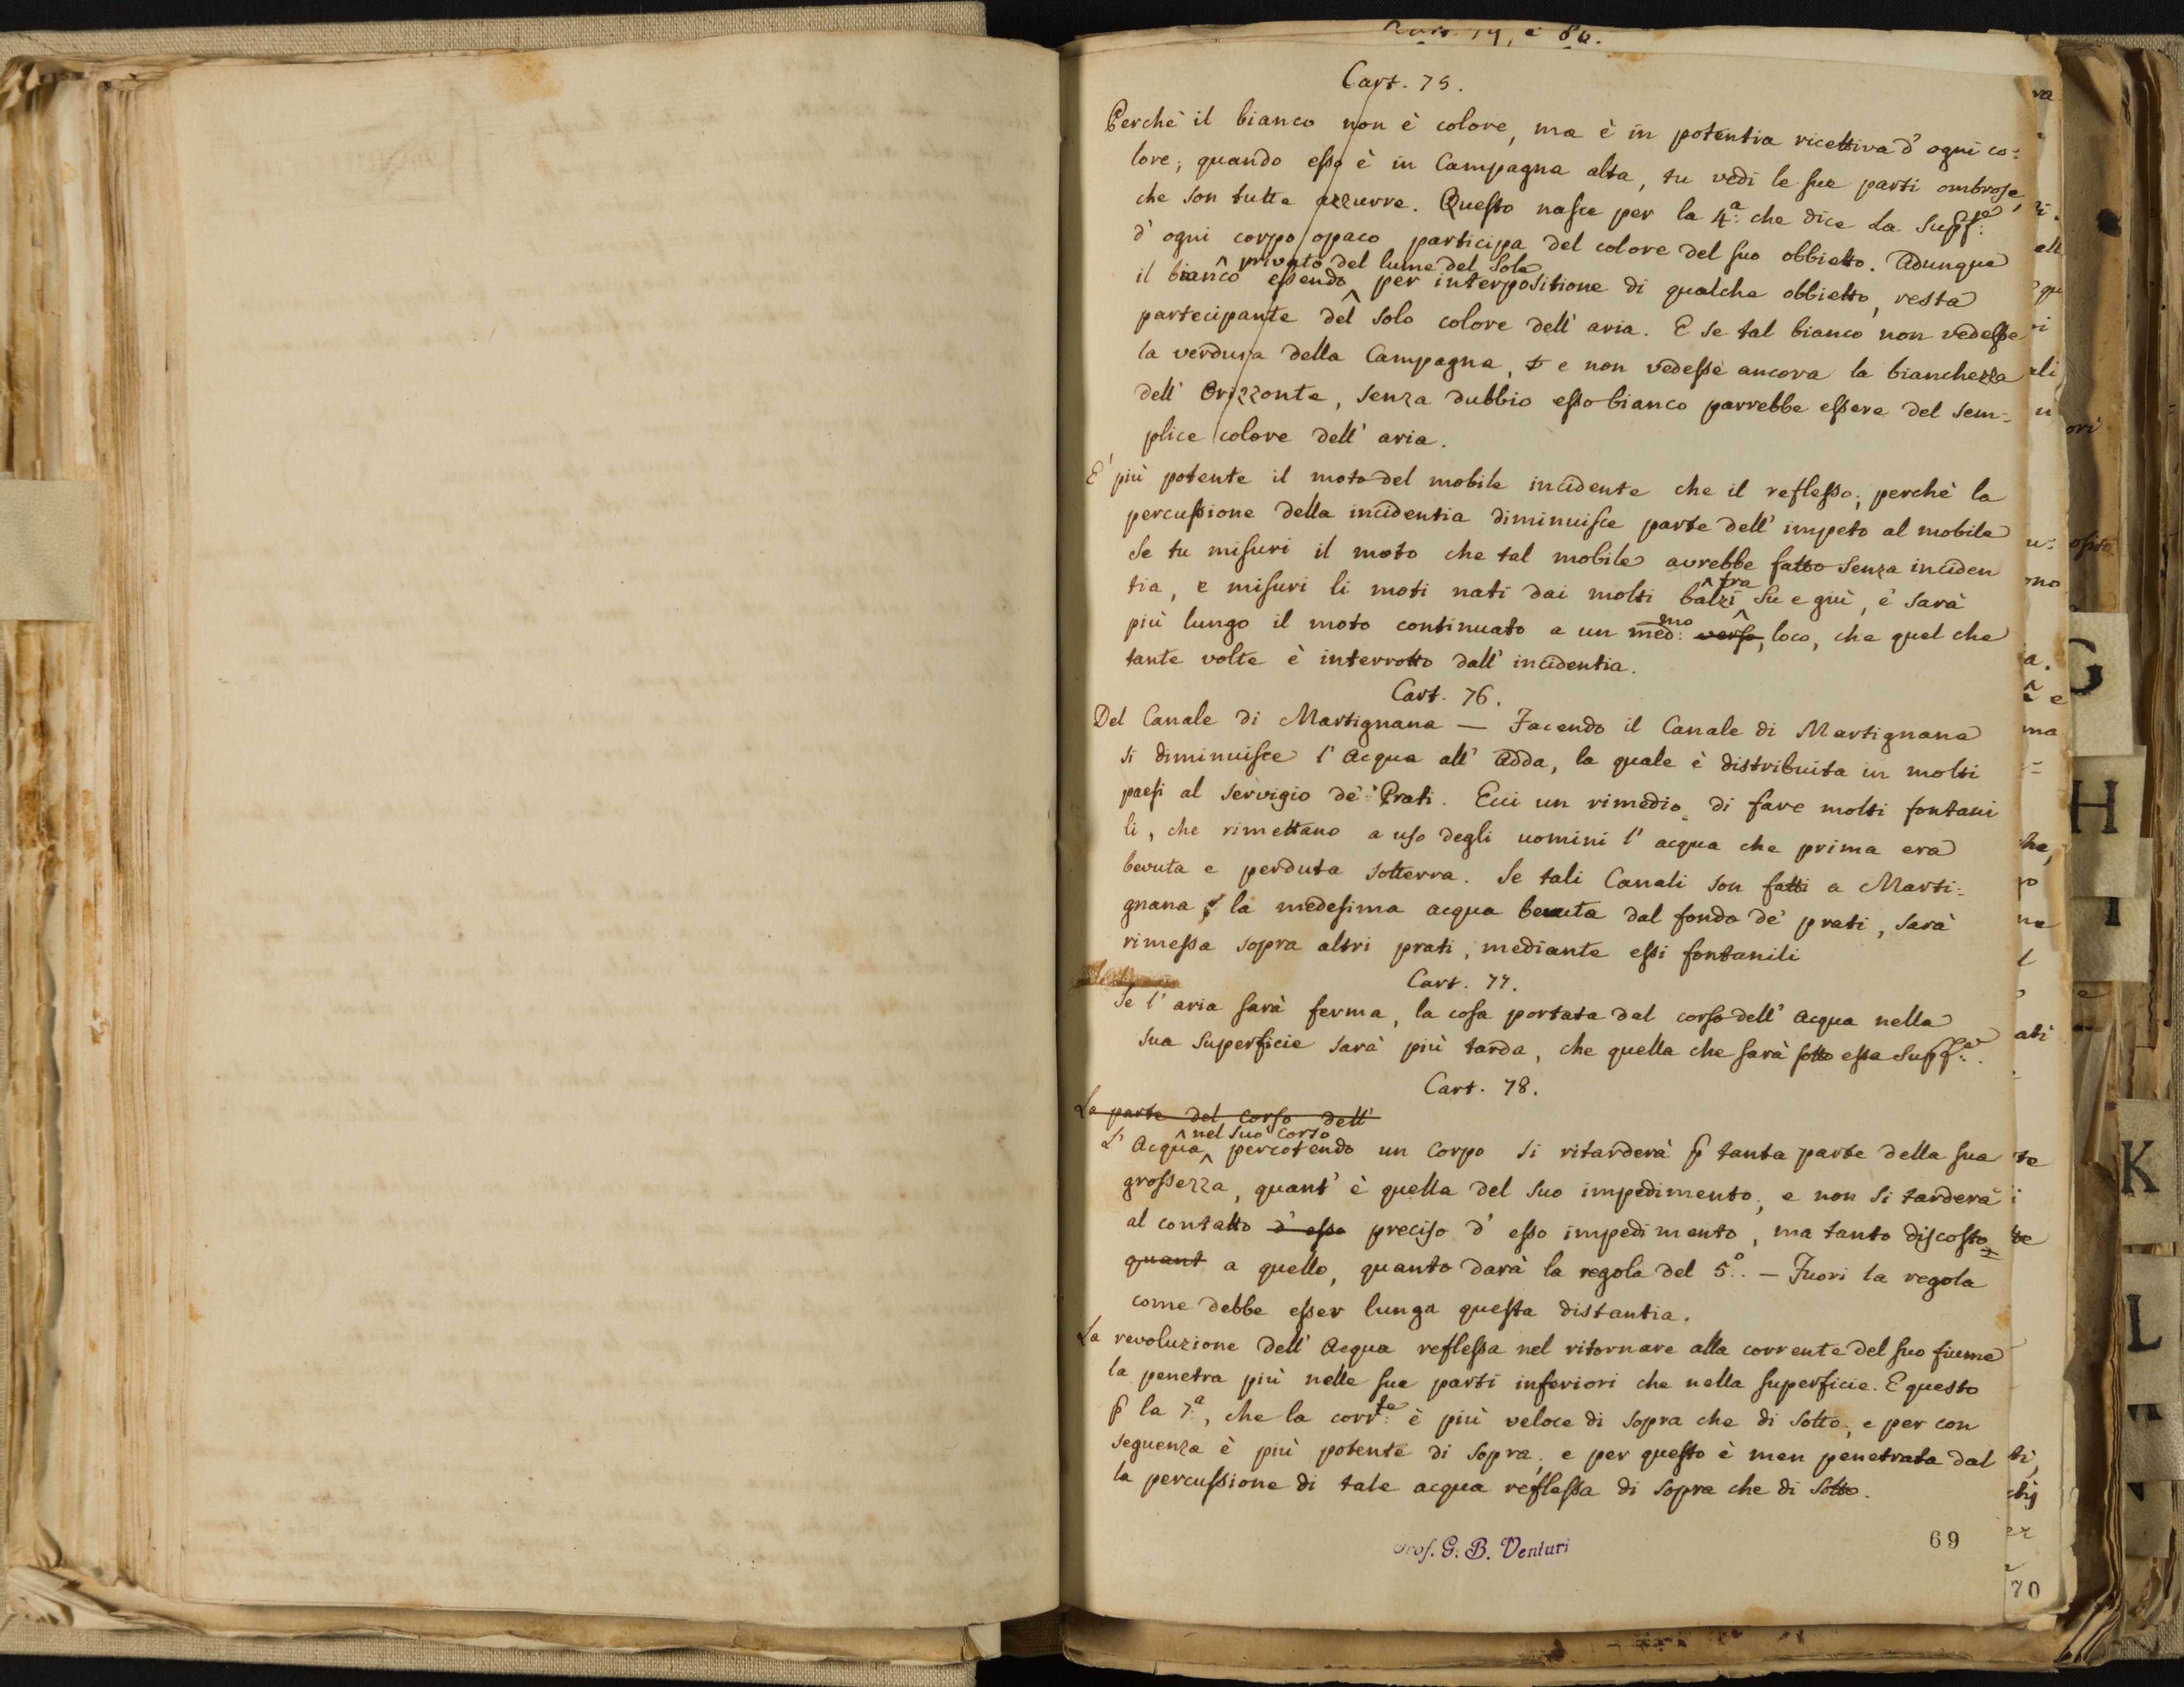 Cart. 79, e 80.
Cart. 75.
Perchè il bianco non è colore, ma è in potentia ricettiva d' ogni co=
lore; quando esso è in Campagna alta, tu vedi le sue parti ombrose,
che son tutte azzurre. Questo nasce per la 4.a che dice La Supf.e
d' ogni corpo opaco participa del colore del suo obbietto. Adunque
privato del lume del Sole
il bianco essendo ^ per interpositione di qualche obbietto, resta
partecipante del solo colore dell' aria. E se tal bianco non vedesse
la verdura della Campagna, e non vedesse ancora la bianchezza
dell' Orizzonte, senza dubbio esso bianco parrebbe essere del sem=
plice colore dell' aria.
E' più potente il moto del mobile incidente che il reflesso; perchè la
percussione della incidentia diminuisce parte dell' impeto al mobile
Se tu misuri il moto che tal mobile avrebbe fatto senza inciden
tia, e misuri li moti nati dai molti balzi ^ fra su e giù, e' sarà
più lungo il moto continuato a un med:mo verso, loco, che quel che
tante volte è interrotto dall' incidentia.
Cart. 76.
Del Canale di Martignana — Facendo il Canale di Martignana
si diminuisce l' Acqua all' Adda, la quale è distribuita in molti
paesi al servigio de' Prati. Ecci un rimedio di fare molti fontani
li, che rimettano a uso degli uomini l' acqua che prima era
bevuta e perduta sotterra. Se tali Canali son fatti a Marti=
gnana la medesima acqua bevuta dal fondo de' prati, sarà
rimessa sopra altri prati, mediante essi fontanili
Cart. 77.
Se l' aria sarà ferma, la cosa portata dal corso dell' Acqua nella
sua Superficie sarà più tarda, che quella che sarà sotto essa Supf:e.
Cart. 78.
La parte del corso dell'
^ nel suo corso
L' Acqua ^ percotendo un Corpo si ritarderà ꝑ tanta parte della sua
grossezza, quant' è quella del suo impedimento; e non si tarderà
al contatto d' esso preciso d' esso impedimento, ma tanto discosto =
quant a quello, quanto darà la regola del 5.o. — Fuori la regola
come debbe esser lunga questa distantia.
La revoluzione dell' Acqua reflessa nel ritornare alla corrente del suo fiume
la penetra più nelle sue parti inferiori che nella superficie. E questo
ꝑ la 7.a, che la corr:te è più veloce di sopra che di sotto; e per con
seguenza è più potente di sopra; e per questo è men penetrata dal
la percussione di tale acqua reflessa di sopra che di sotto.
Prof. G. B. Venturi
69
70
G
H
I
K
L